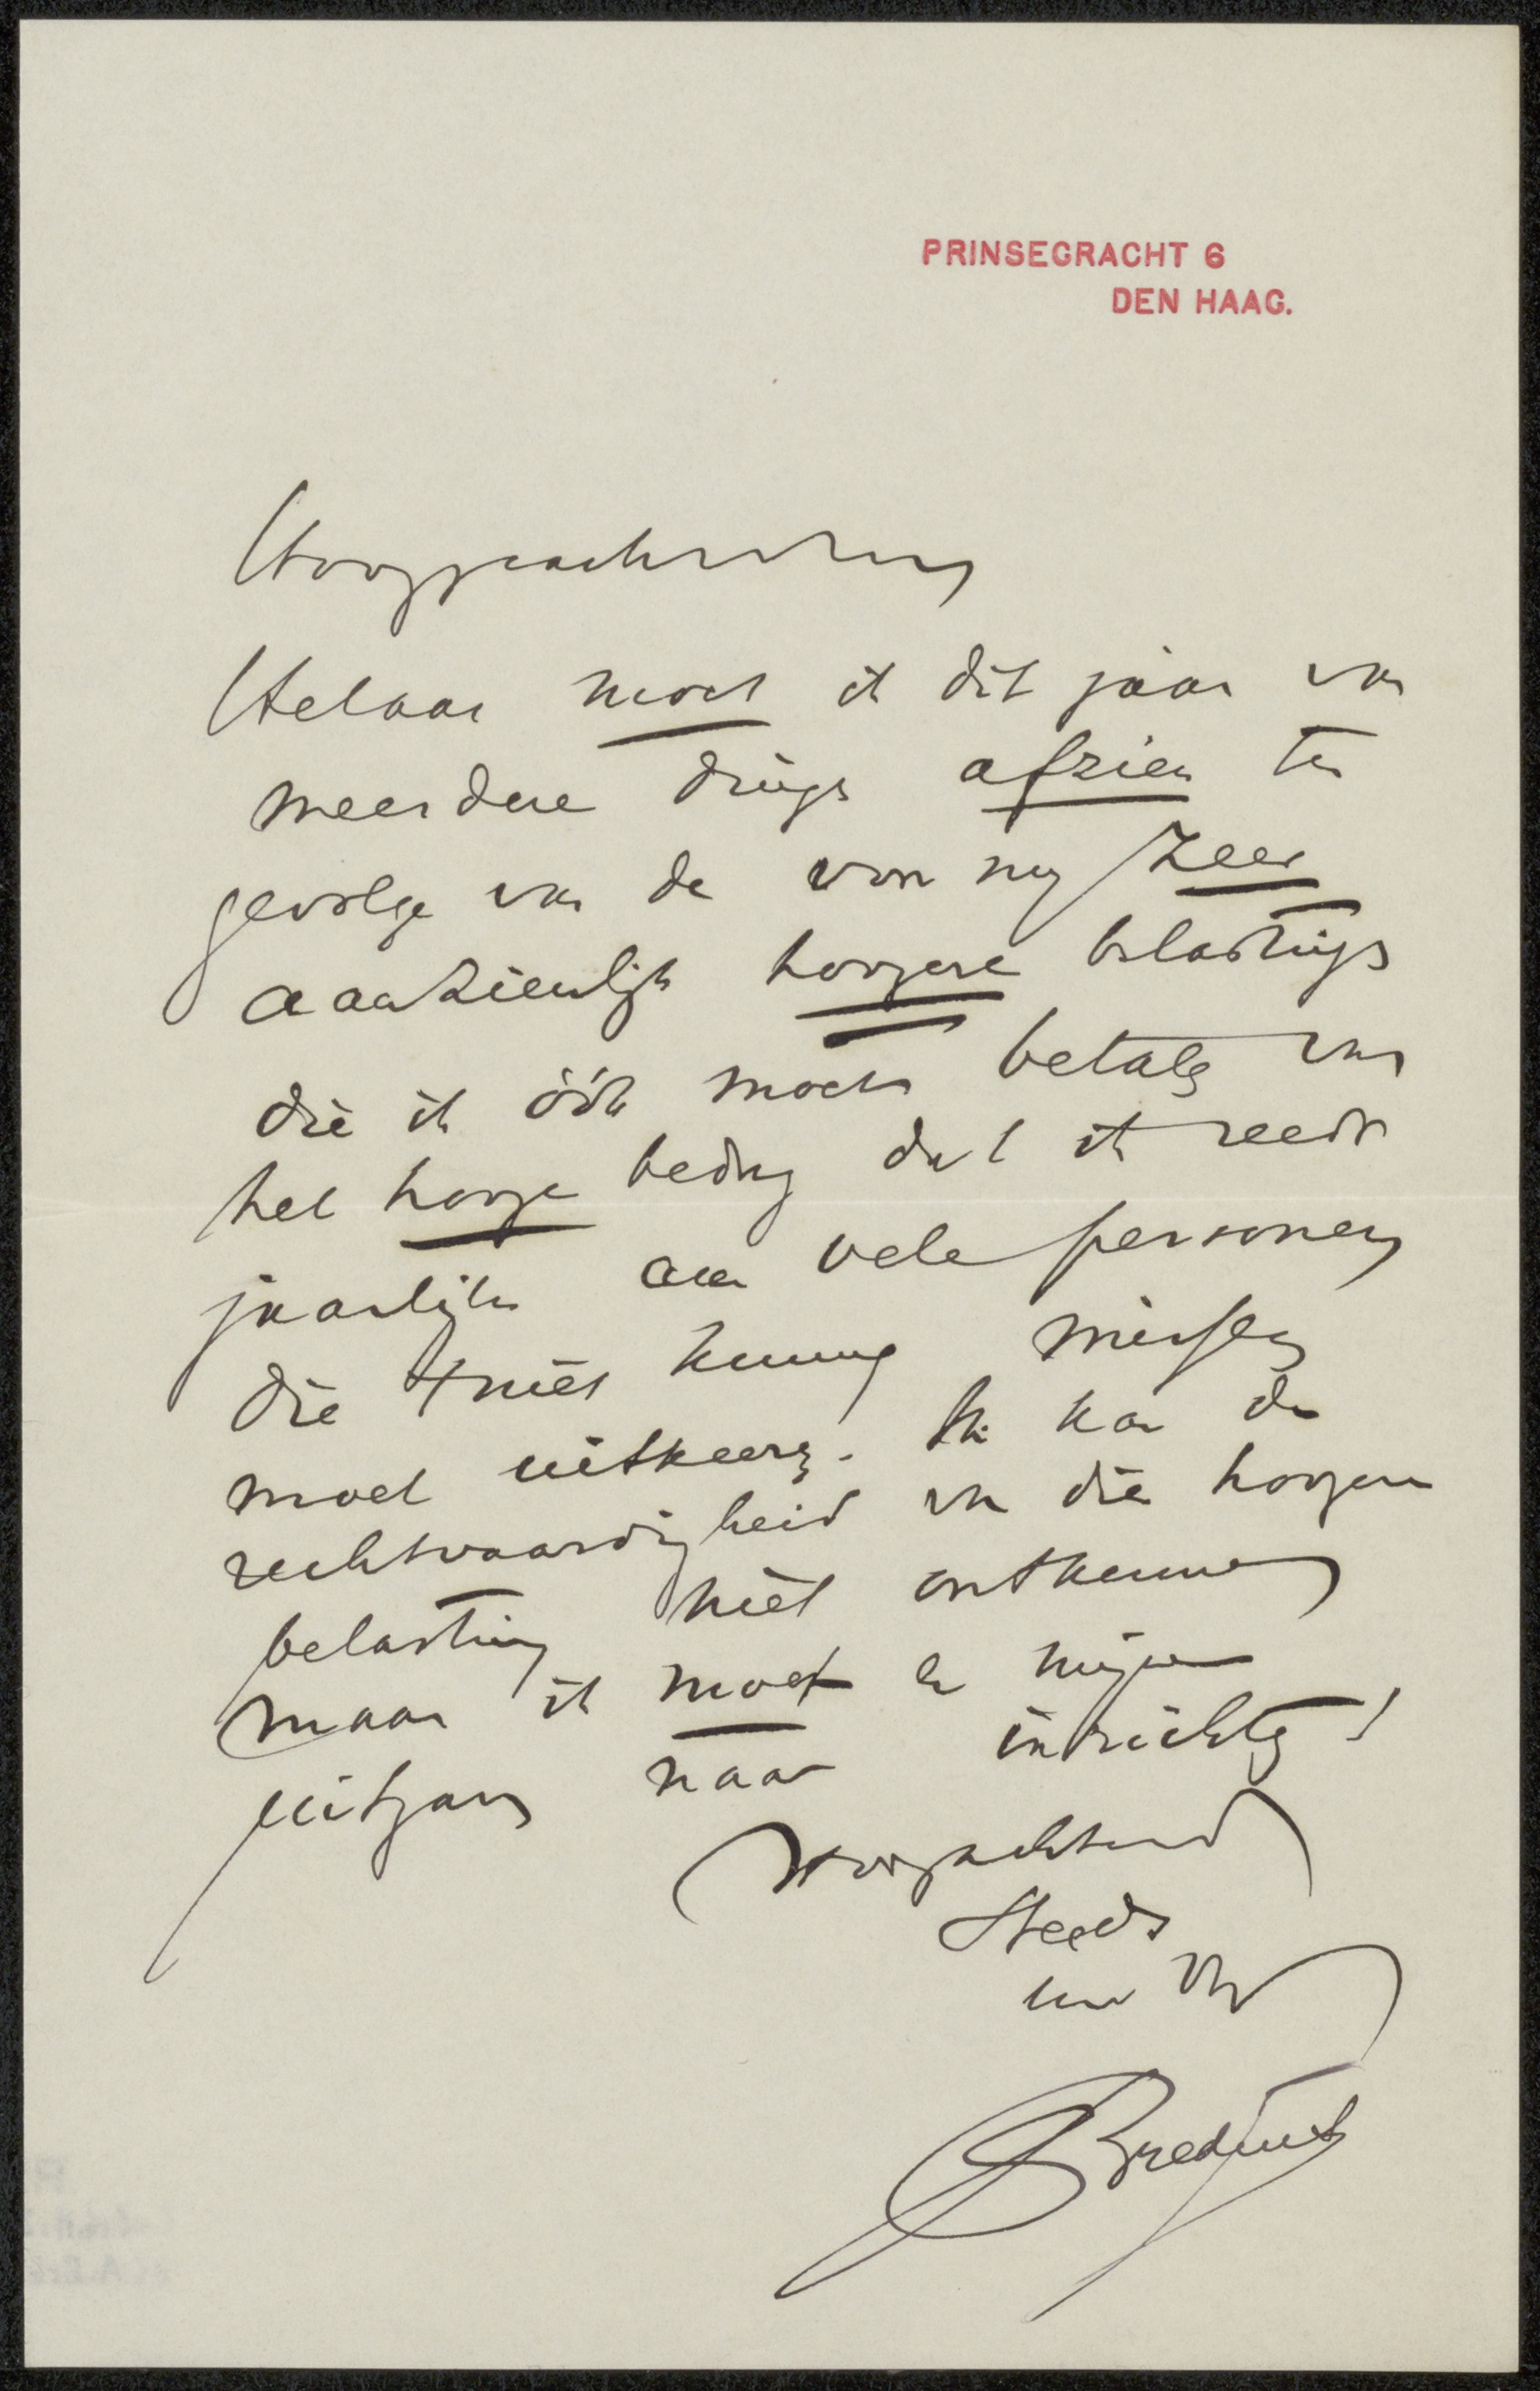 PRINSEGRACHT 6
DEN HAAG.
Hooggeachte
Helaas moet ik dit jaar van
meerdere dingen afzien ten
gevolge van de voor mij zeer
aanzienlijk hoogere belastingen
die ik óók moet betalen van
het hooge bedrag dat ik reeds
jaarlijks aan vele personen
die 't niet kunnen missen
moet uitkeeren. Ik kan de
rechtvaardigheid van die hoogere
belasting niet ontkennen
maar ik moet er mijne
uitgaven naar inrichten!
Hoogachtend
Steeds
uw
A Bredius